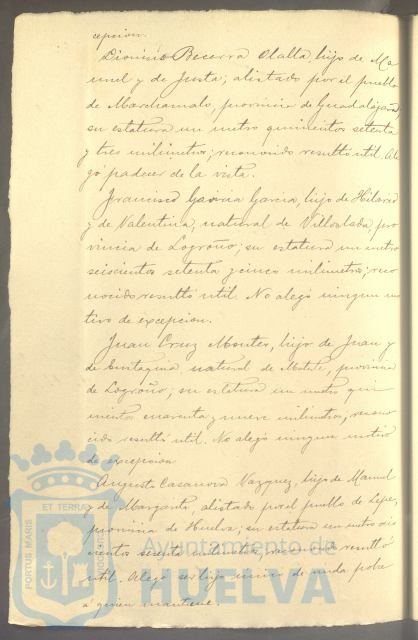 cepcion.
Dionisio Becerra Olalla, hijo de Ma
nuel y de Justa; alistado por el pueblo
de Marchamalo, provincia de Guadalajara,
su estatura un metro quinientos setenta
y tres milimetros; reconocido resultó util. Ale
gó padecer de la vista.
Francisco Garcia Garcia, hijo de Hilario
y de Valentina, natural de pro
vincia de Logroño; su estatura un metro
seiscientos setenta y cinco milimetros; reco
nocido resultó util. No alegó ningun mo
tivo de excepcion.
Juan Cruz Montes, hijo de Juan y
de natural de provincia
de Logroño; su estatura un metro qui
nientos cuarenta y nueve milimetros, recono
cido resultó util. No alegó ningun motivo
de excepcion
Augusto Casanova Vazquez, hijo de Manuel
y de Margarita, alistado por el pueblo de Lepe,
provincia de Huelva; su estatura un metro seis
cientos sesenta milimetros, reconocido resultó
util. Alegó ser hijo unico de viuda pobre
á quien mantiene.
PORTUS MARIS
ET TERRAE
CUSTODIA
Ayuntamiento de
HUELVA